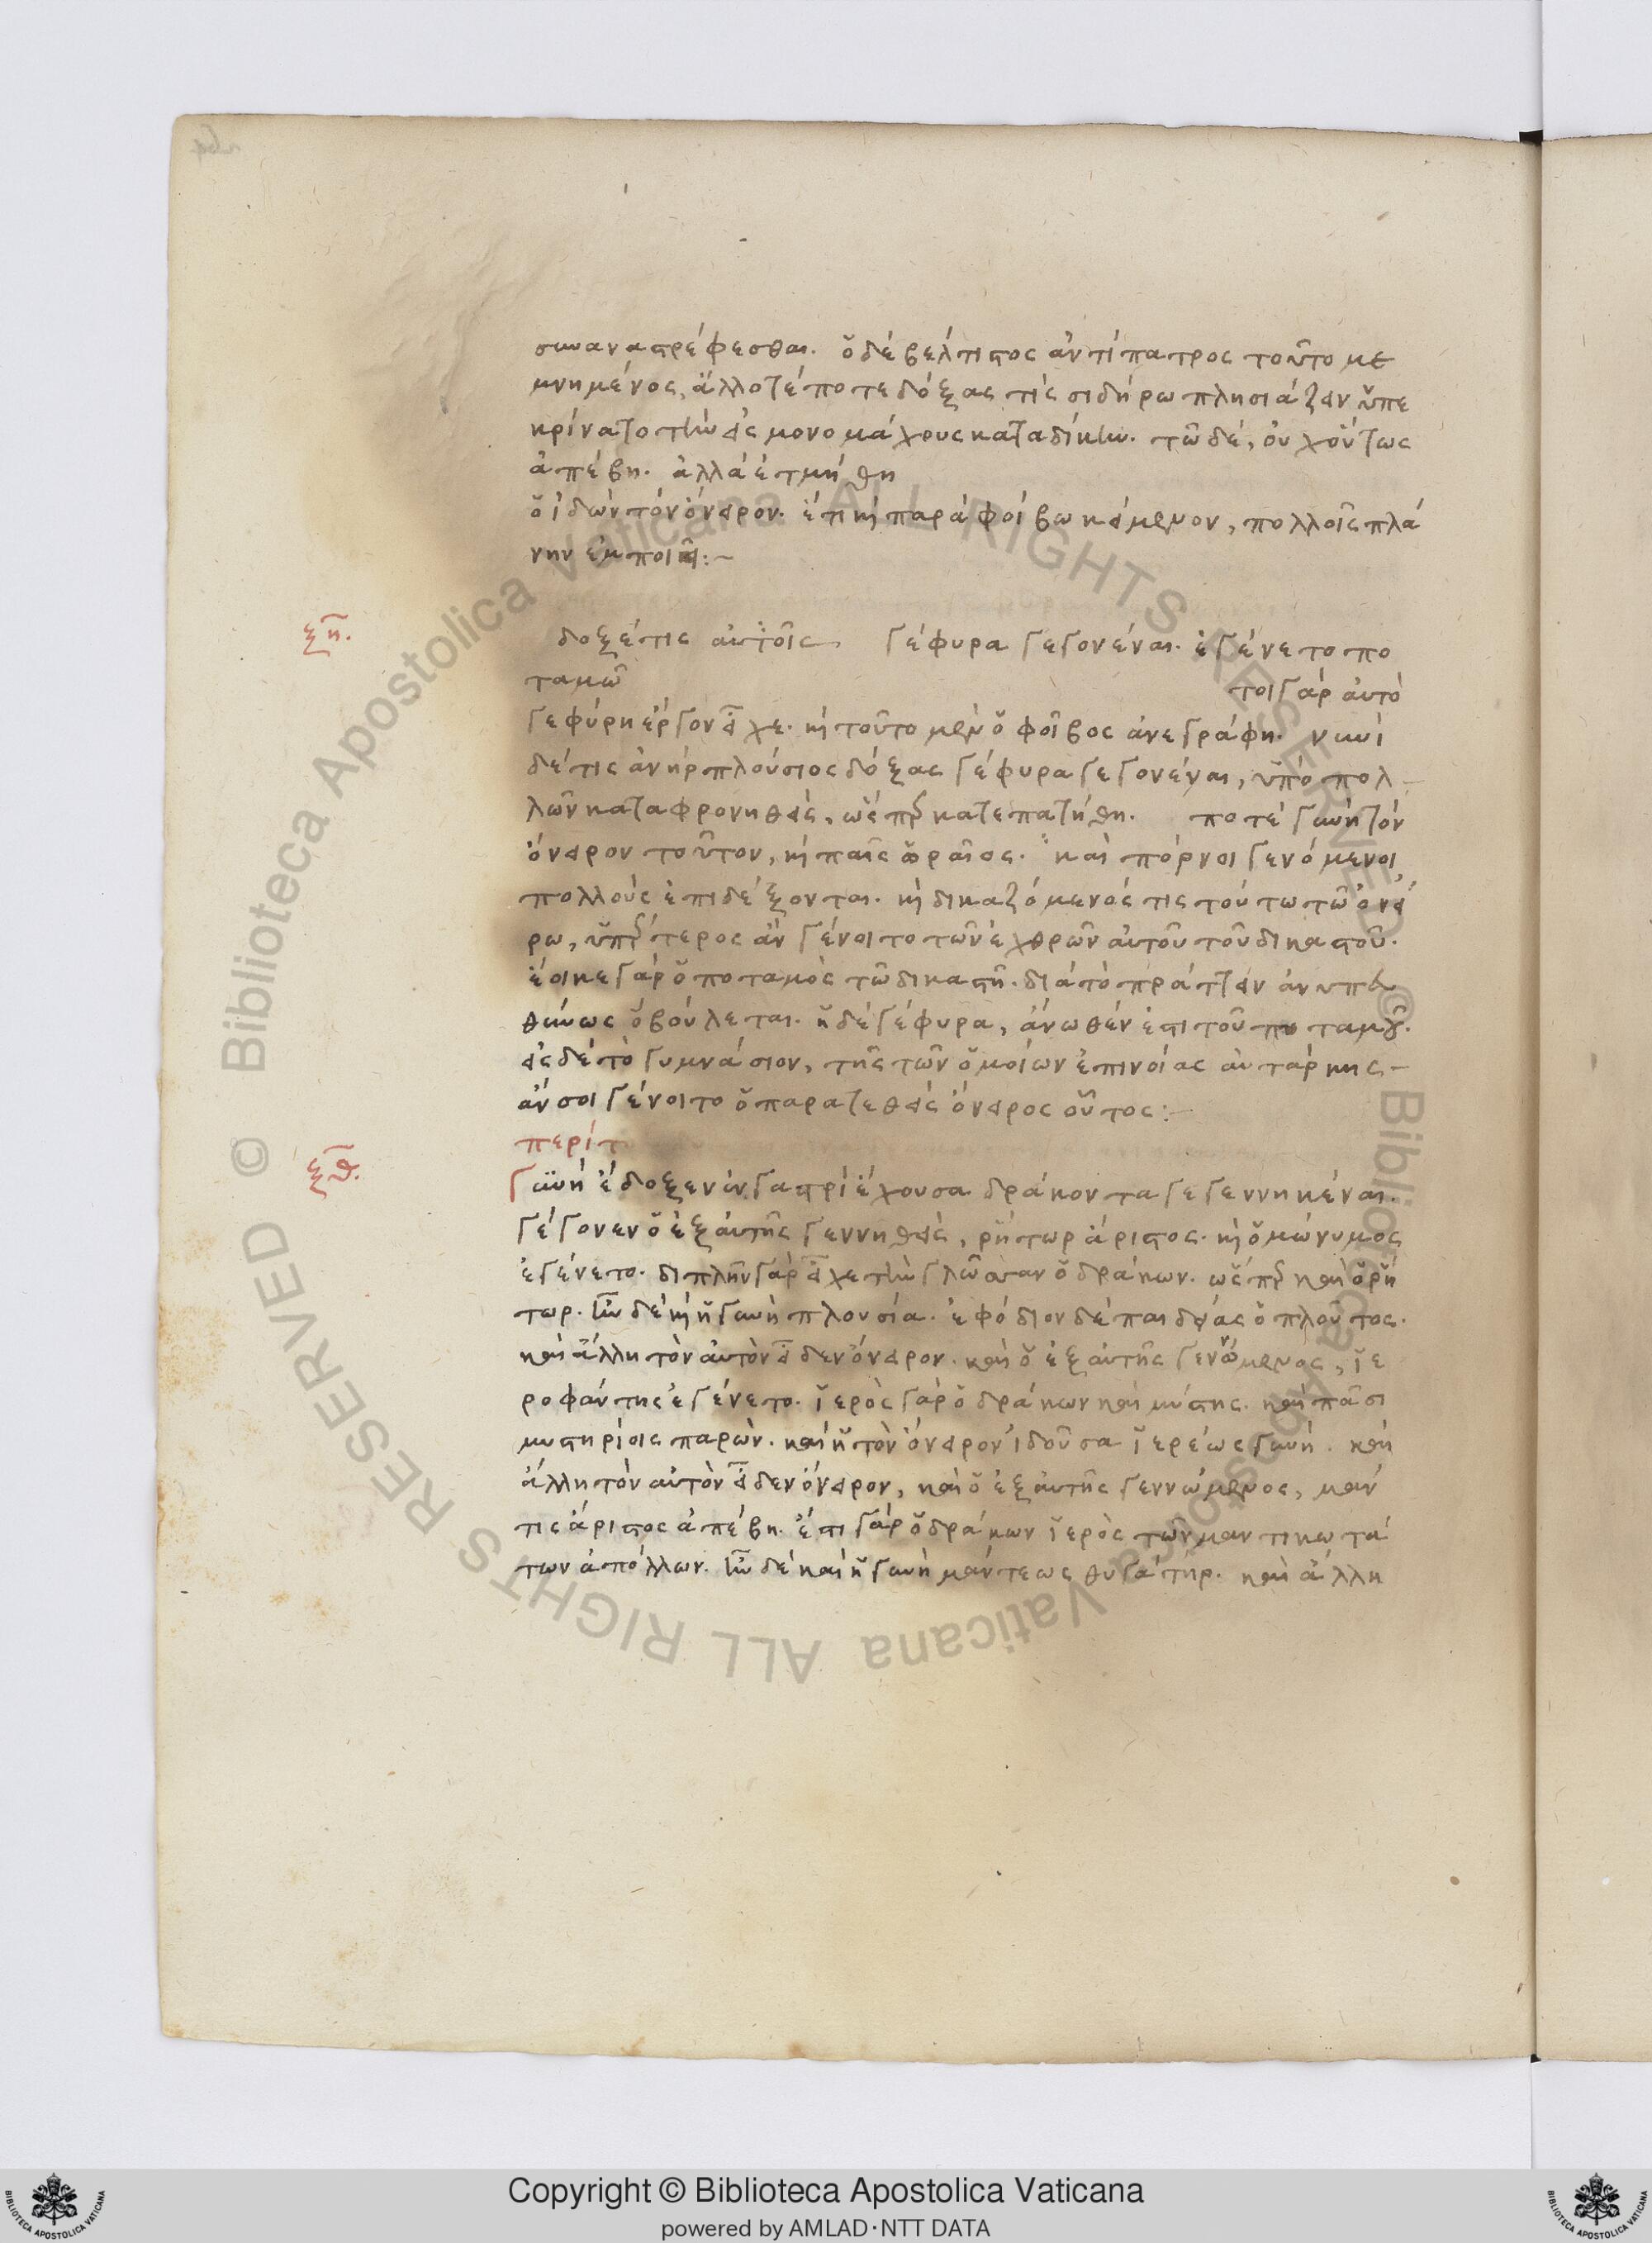 συναναστρέφεσθαι. ὁ δὲ βέλτιστος ἀντίπατρος τοῦτο με
μνημένος, ἄλλοτέ ποτε δόξας τίς σιδήρω πλησιάζειν ὑπε
κρίνατο τὴν εἰς μονομάχους καταδίκην. τῶ δέ, οὐχ οὕτως
ἀπέβη. ἀλλὰ ἐτμήθη
ὁ ἰδὼν τὸν ὄνειρον. ἔτι κὴ παρὰ φοίβω κείμενον, πολλοῖς πλά
νην ἐμποιεῖ:~
ξη.
δοξέ τις αὐτοῖς γέφυρα γεγονέναι. ἐγένετο πο
ταμῶ
τοι γὰρ αὐτὸ
γεφύρη ἔργον εἶχε. κὴ τοῦτο μὲν ὁ φοῖβος ἀνεγράφη. νυνὶ
δέ τις ἀνὴρ πλούσιος δόξας γέφυρα γεγονέναι, ὑπὸ πολ
λῶν καταφρονηθεὶς, ὥσπερ κατεπατήθη. ποτέ γυνὴ τὸν
ὄνειρον τοῦτον, κὴ παῖς ὡραῖος. καὶ πόρνοι γενόμενοι
πολλοὺς ἐπιδέξονται. κὴ δικαζόμενός τις τούτω τῶ ὀνεί
ρω, ὑπέρτερος ἂν γένοιτο τῶν ἐχθρῶν αὐτοῦ τοῦ δικαστοῦ.
ἔοικε γὰρ ὁ ποταμὸς τῶ δικαστῆ. διὰ τὸ πράττειν ἀνυπευ
θύνως ὃ βούλεται. ἡ δὲ γέφυρα, ἄνωθέν ἐστι τοῦ ποταμοῦ.
εἰς δὲ τὸ γυμνάσιον, τῆς τῶν ὁμοίων ἐπινοίας αὐτάρκης
ἄν σοι γένοιτο ὁ παρατεθεὶς ὄνειρος οὗτος:
περὶ τ
ξθ.
Γυνὴ ἔδοξεν ἐν γαστρὶ ἔχουσα δράκοντα γεγεννηκέναι.
γέγονεν ὁ ἐξ αὐτῆς γεννηθεὶς, ῥήτωρ ἄριστος. κὴ ὁμώνυμος
ἐγένετο. διπλῆν γὰρ εἶχε τὴν γλῶσσαν ὁ δράκων. ὥσπερ καὶ ὁ ῥή
τωρ. ἦν δὲ κὴ ἡ γυνὴ πλουσία. ἐφόδιον δὲ παιδείας ὁ πλοῦτος.
καὶ ἄλλη τὸν αὐτὸν εἶδεν ὄνειρον. καὶ ὁ ἐξ αὐτῆς γενόμενος, ἱε
ροφάντης ἐγένετο. ἱερὸς γὰρ ὁ δράκων καὶ μύστης. καὶ πᾶσι
μυστηρίοις παρὼν. καὶ ἡ τὸν ὄνειρον ἰδοῦσα ἱερέως γυνή. καὶ
ἄλλη τὸν αὐτὸν εἶδεν ὄνειρον, καὶ ὁ ἐξ αὐτῆς γεννώμενος, μάν
τις ἄριστος ἀπέβη. ἔστι γὰρ ὁ δράκων ἱερὸς τῶν μαντικωτά
των ἀπόλλων. ἦν δὲ καὶ ἡ γυνὴ μάντεως θυγάτηρ. καὶ ἄλλη
Copyright © Biblioteca Apostolica Vaticana
powered by AMLAD·NTT DATA